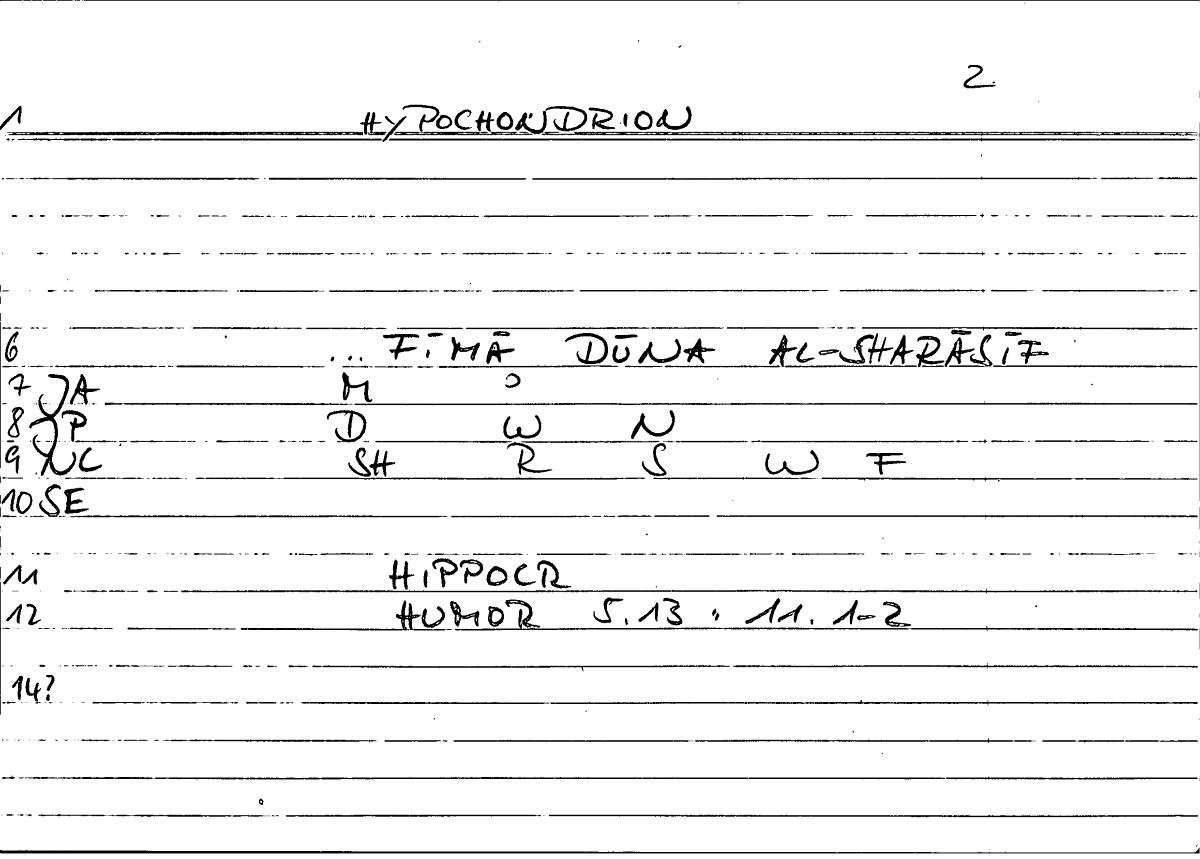 2
1 HYPOCHONDRION
6 ... FĪMĀ DŪNA AL-SHARĀSĪF
7 JA M
8 JP D W N
9 NC SH R S W F
10 SE
11 HIPPOCR
12 HUMOR 5.13 : 11. 1-2
14?